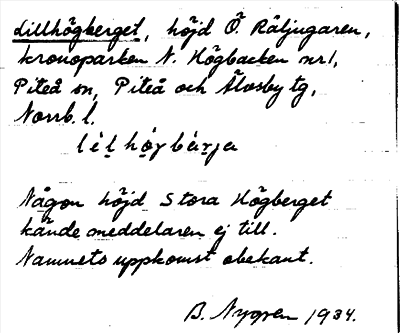 Lillhögberget, höjd Ö. Räljugaren,
kronoparken N. Högbacken nr 1,
Piteå sn, Piteå och Älvsby tg,
Norrb. l.
Någon höjd Stora Högberget
kände meddelaren ej till.
Namnets uppkomst obekant.
B. Nygren 1934.